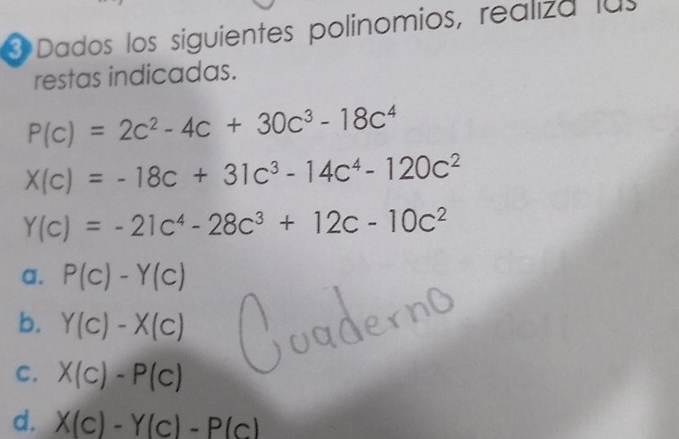 3 Dados los siguientes polinomios, realiza las
restas indicadas.
P(c) = 2c² - 4c + 30c³ - 18c⁴
X(c) = - 18c + 31c³ - 14c⁴ - 120c²
Y(c) = - 21c⁴ - 28c³ + 12c - 10c²
a. P(c) - Y(c)
b. Y(c) - X(c)
Cuaderno
c. X(c) - P(c)
d. X(c) - Y(c) - P(c)